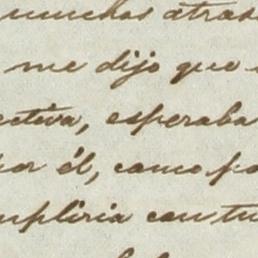 muchas atras
me dijo que
ectiva, esperaba
por él, como pa
mpliria con tu